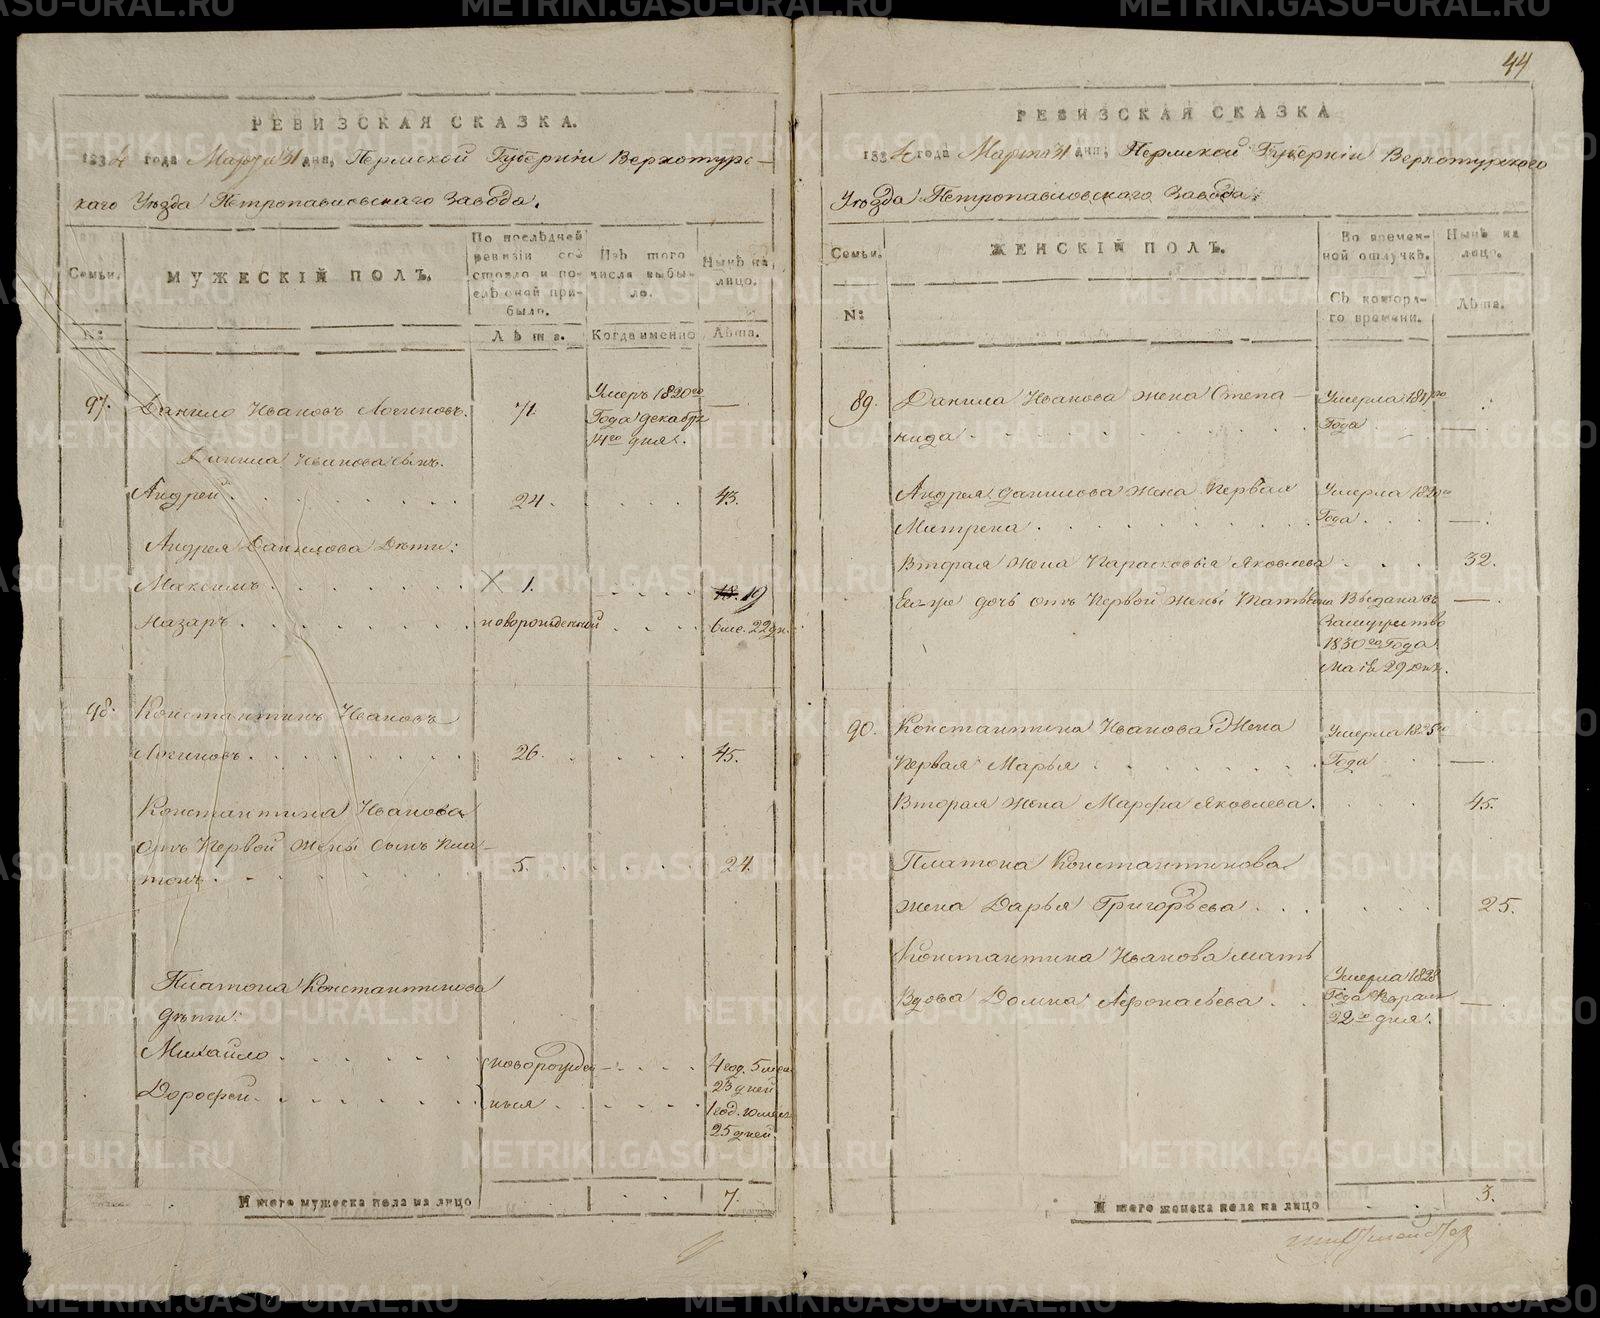 44
РЕВИЗСКАЯ СКАЗКА.
1834 года Марта 31 дня, Пермской Губерніи Верхотурс-
каго Уѣзда Петропавловскаго Завода.
Семьи.
МУЖЕСКІЙ ПОЛЪ.
По послѣдней ревизіи состояло и послѣ оной прибыло.
Изъ того числа выбыло.
Нынѣ на лицо.
N:
Лѣта.
Когда именно
Лѣта.
97. Данило Ивановъ Логиновъ. 71. Умеръ 1820го —
Года декабря
14го дня.
Данила Иванова сынъ.
Андрей 24. 43.
Андрея Данилова Дѣти:
Максимъ 1. 19
Назаръ новорожденный 6 ме. 22 дн.
98. Константинъ Ивановъ
Логиновъ. 26. 45.
Константина Иванова
отъ Первой жены сынъ Пла-
тонъ. 5. 24.
Платона Константинова
дѣти:
Михайло новорожден- 4 год. 5 меся
23 дней
Дорофей. ныя 1 год. 10 меся
25 дней.
Итого мужеска пола на лицо 7.
РЕВИЗСКАЯ СКАЗКА
1834 года Марта 31 дня, Пермской Губерніи Верхотурскаго
Уѣзда Петропавловскаго Завода.
Семьи.
ЖЕНСКІЙ ПОЛЪ.
Во временной отлучкѣ.
Нынѣ на лицо.
N:
Съ котораго времени.
Лѣта.
89. Данила Иванова жена Степа- Умерла
нида Года —
Андрея Данилова жена Первая Умерла 1820го
Матрена Года —
Вторая жена Парасковья Яковлева 32.
Ее же дочь отъ Первой жены Татьяна Выдана въ —
Замужество
1830го Года
Маія 29 дня.
90. Константина Иванова Жена Умерла 1825го
Первая Марья Года —
Вторая жена Марфа Яковлева. 45.
Платона Константинова
жена Дарья Григорьева 25.
Константина Иванова мать
Умерла 1828
Вдова Домна Афонасьева Года —
22го дня.
Итого женска пола на лицо 3.
METRIKI.GASO-URAL.RU